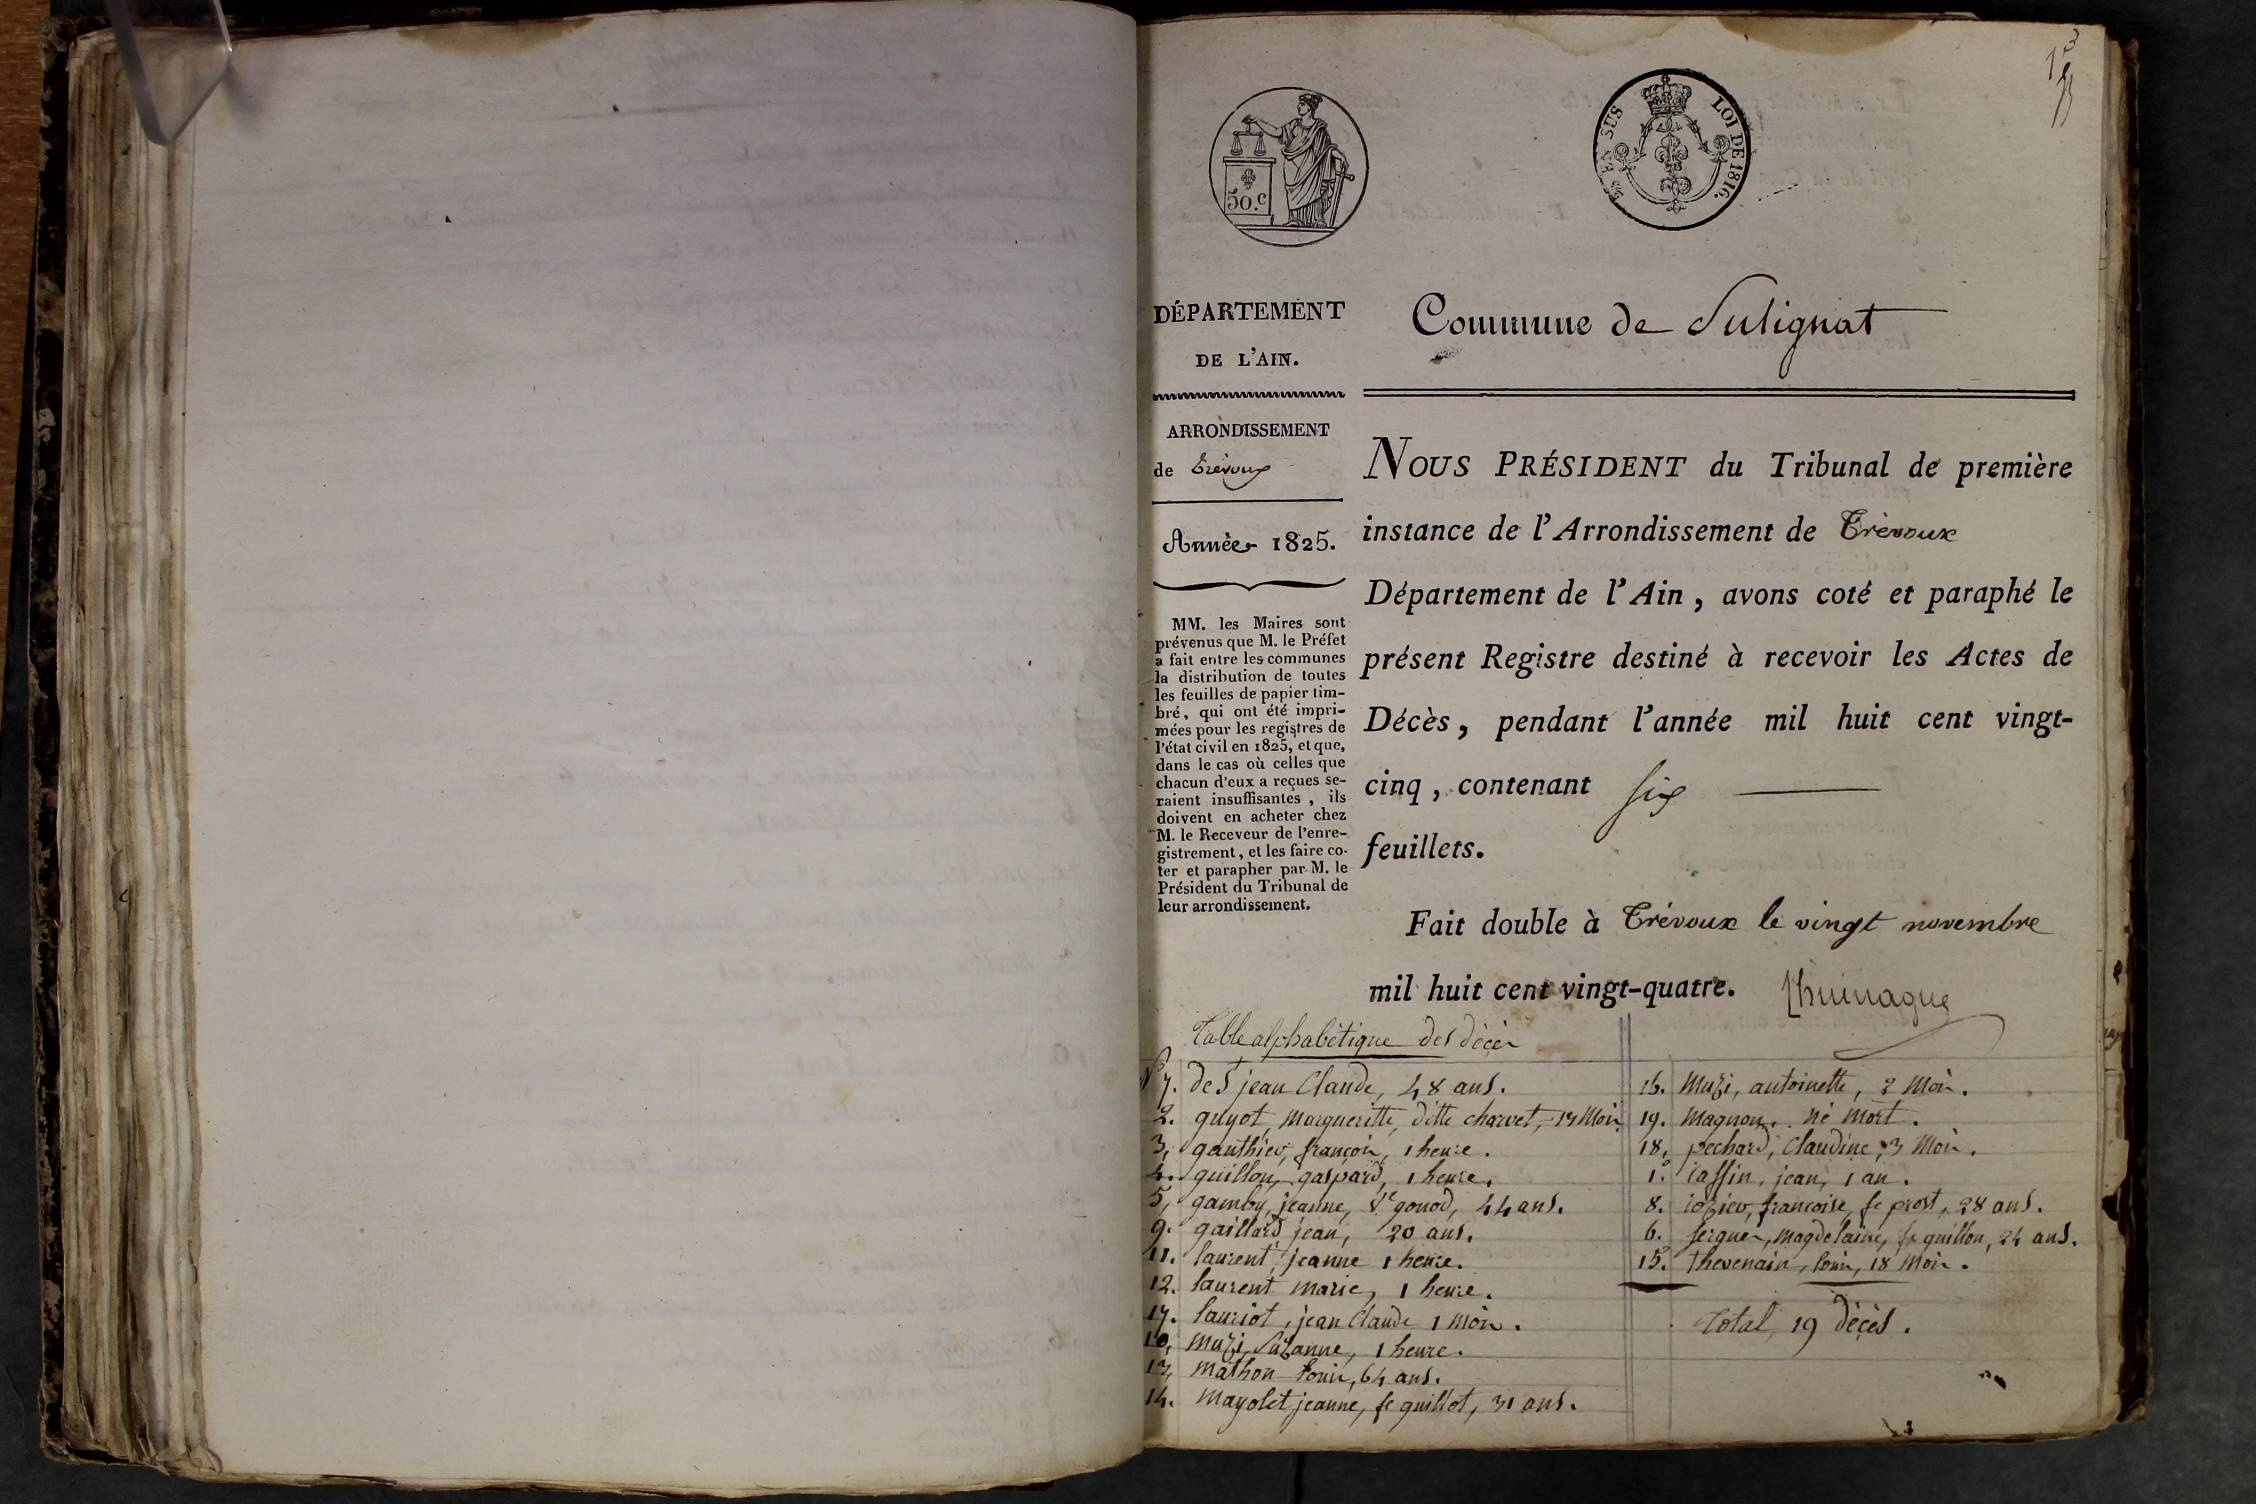 50.c
EN SUS LOI DE 1816.
DÉPARTEMENT
DE L'AIN.
ARRONDISSEMENT
de Trévoux
Année 1825.
MM. les Maires sont
prévenus que M. le Préfet
a fait entre les communes
la distribution de toutes
les feuilles de papier tim-
bré, qui ont été impri-
mées pour les registres de
l'état civil en 1825, et que,
dans le cas où celles que
chacun d'eux a reçues se-
raient insuffisantes, ils
doivent en acheter chez
M. le Receveur de l'enre-
gistrement, et les faire co-
ter et parapher par M. le
Président du Tribunal de
leur arrondissement.
Commune de Sulignat
NOUS PRÉSIDENT du Tribunal de première
instance de l'Arrondissement de Trévoux
Département de l'Ain, avons coté et paraphé le
présent Registre destiné à recevoir les Actes de
Décès, pendant l'année mil huit cent vingt-
cinq, contenant six
feuillets.
Fait double à Trévoux le vingt novembre
mil huit cent vingt-quatre.
Table alphabétique des décès
N° 7. des jean Claude, 48 ans.
2. guyot, margueritte, ditte charvet, Mois
3, gauthier, françois, 1 heure.
4. guillon, gaspard, 1 heure.
5, gamby, jeanne, Ve gonod, 44 ans.
9. gaillard jean, 20 ans.
11. laurent jeanne 1 heure.
12. laurent marie, 1 heure.
17. lauriot, jean Claude 1 mois.
10, muzi, Suzanne, 1 heure.
13, mathon Louis, 64 ans.
14. mayolet jeanne, fe guillot, 31 ans.
16. muzi, antoinette, 2 Mois.
19. magnon. né mort.
18, pechard, Claudine, 3 Mois.
1. jean, 1 an.
8. francoise, fe prost, 28 ans.
6. magdelaine, fe guillon, 24 ans.
15. thevenain, louis, 18 Mois.
Total, 19 décès.